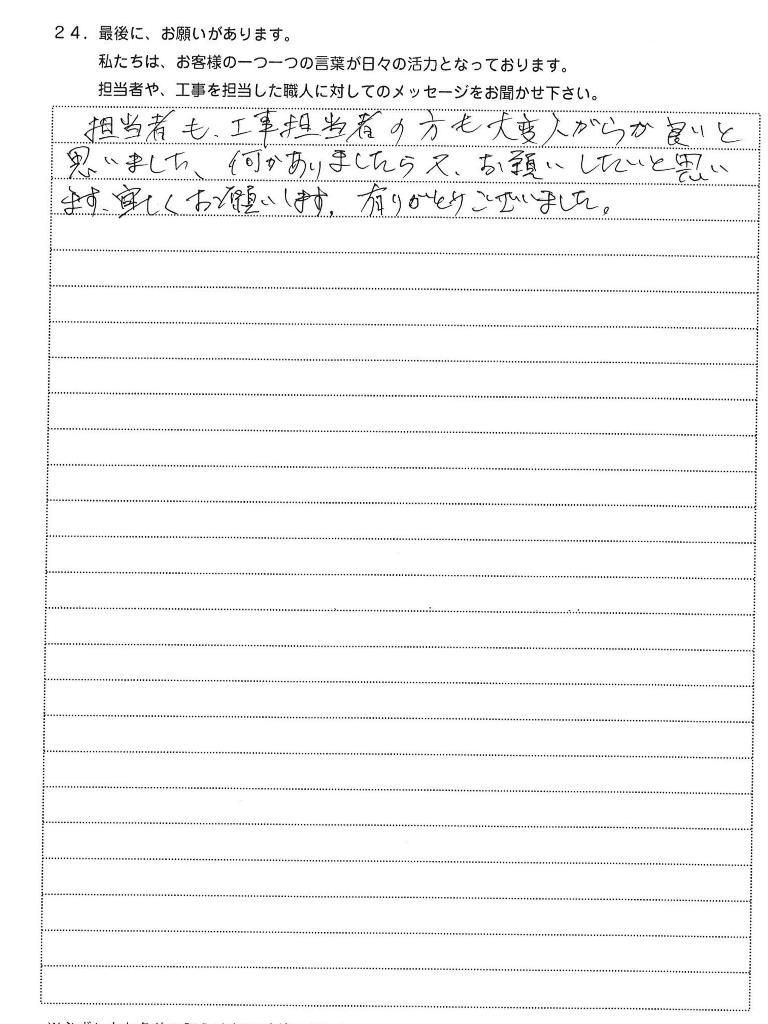 24. 最後に、お願いがあります。
私たちは、お客様の一つ一つの言葉が日々の活力となっております。
担当者や、工事を担当した職人に対してのメッセージをお聞かせ下さい。
担当者も、工事担当者の方も大変人がらが良いと
思いました、何かありましたら又、お願いしたいと思い
ます、宜しくお願いします。有りがとうございました。